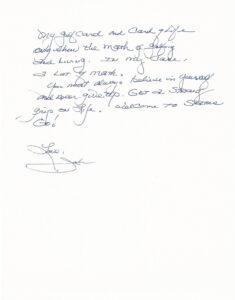 My golf card and card of life
only show the marks of 
and living. In my case,
a lot of marks.
You must always believe in yourself
and never give up. Get a strong
grip on life. Welcome to 
Go!
Love,